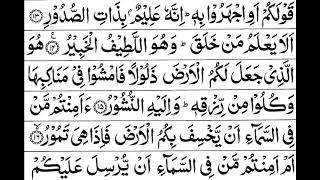 قَوْلَكُمْ اَوِ اجْهَرُوْا بِهٖ ؕ اِنَّهٗ عَلِيْمٌۢ بِذَاتِ الصُّدُوْرِ ﴿۱۳﴾
اَلَا يَعْلَمُ مَنْ خَلَقَ ؕ وَهُوَ اللَّطِيْفُ الْخَبِيْرُ ﴿۱۴﴾ هُوَ
الَّذِيْ جَعَلَ لَكُمُ الْاَرْضَ ذَلُوْلًا فَامْشُوْا فِيْ مَنَاكِبِهَا
وَكُلُوْا مِنْ رِّزْقِهٖ ؕ وَاِلَيْهِ النُّشُوْرُ ﴿۱۵﴾ ءَاَمِنْتُمْ مَّنْ
فِي السَّمَآءِ اَنْ يَّخْسِفَ بِكُمُ الْاَرْضَ فَاِذَا هِيَ تَمُوْرُ ﴿۱۶﴾
اَمْ اَمِنْتُمْ مَّنْ فِي السَّمَآءِ اَنْ يُّرْسِلَ عَلَيْكُمْ